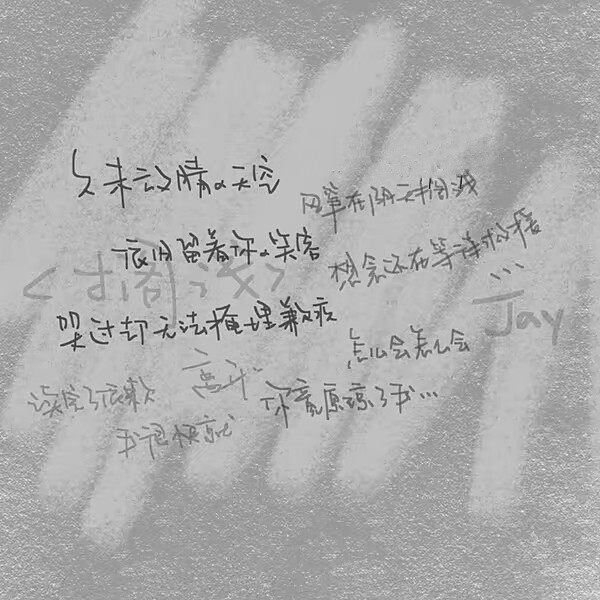 久未放晴の天空
依旧留着你の笑容
哭过却无法掩埋歉疚
风筝在阴天搁浅
想念还在等待救援
<搁浅>
...
—Jay
怎么会怎么会
你竟原谅了我...
读完了依赖
我很快就
离开